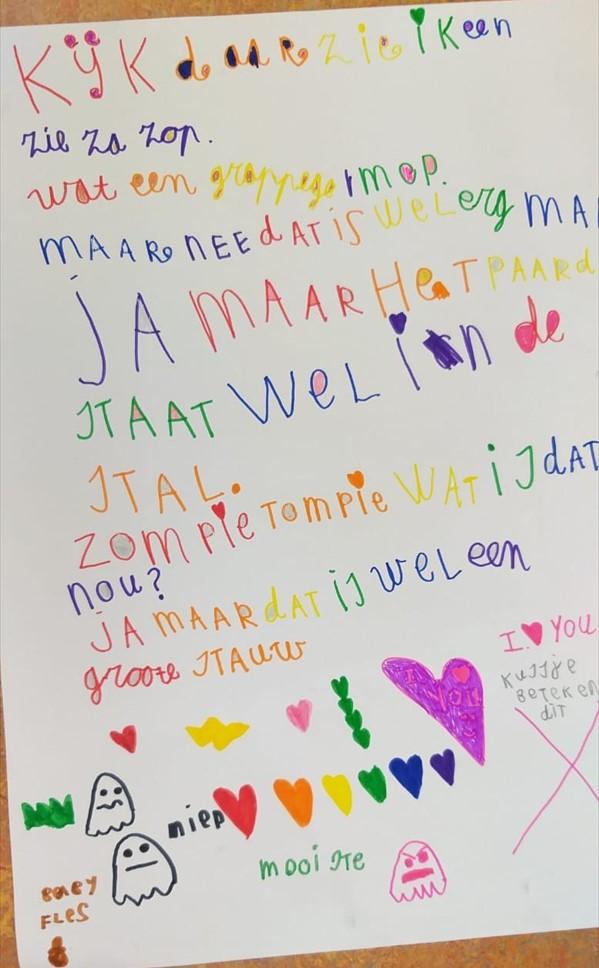 Kijk daar zie ik een
zie za zop.
wat een grappege mop.
MAAR NEE dAT is WeL erg MA
jA MAAR HeT PAARd
STAAT WeL in de
STAL.
ZOMPie TOMPie WAT is dAT
nou?
jA MAAR dAT is weL een
groote STAUW
I ♥ YOU
KUSSJe
BeTeKeN
diT
I
YOU
niep
mooiSTe
BABY
FLeS